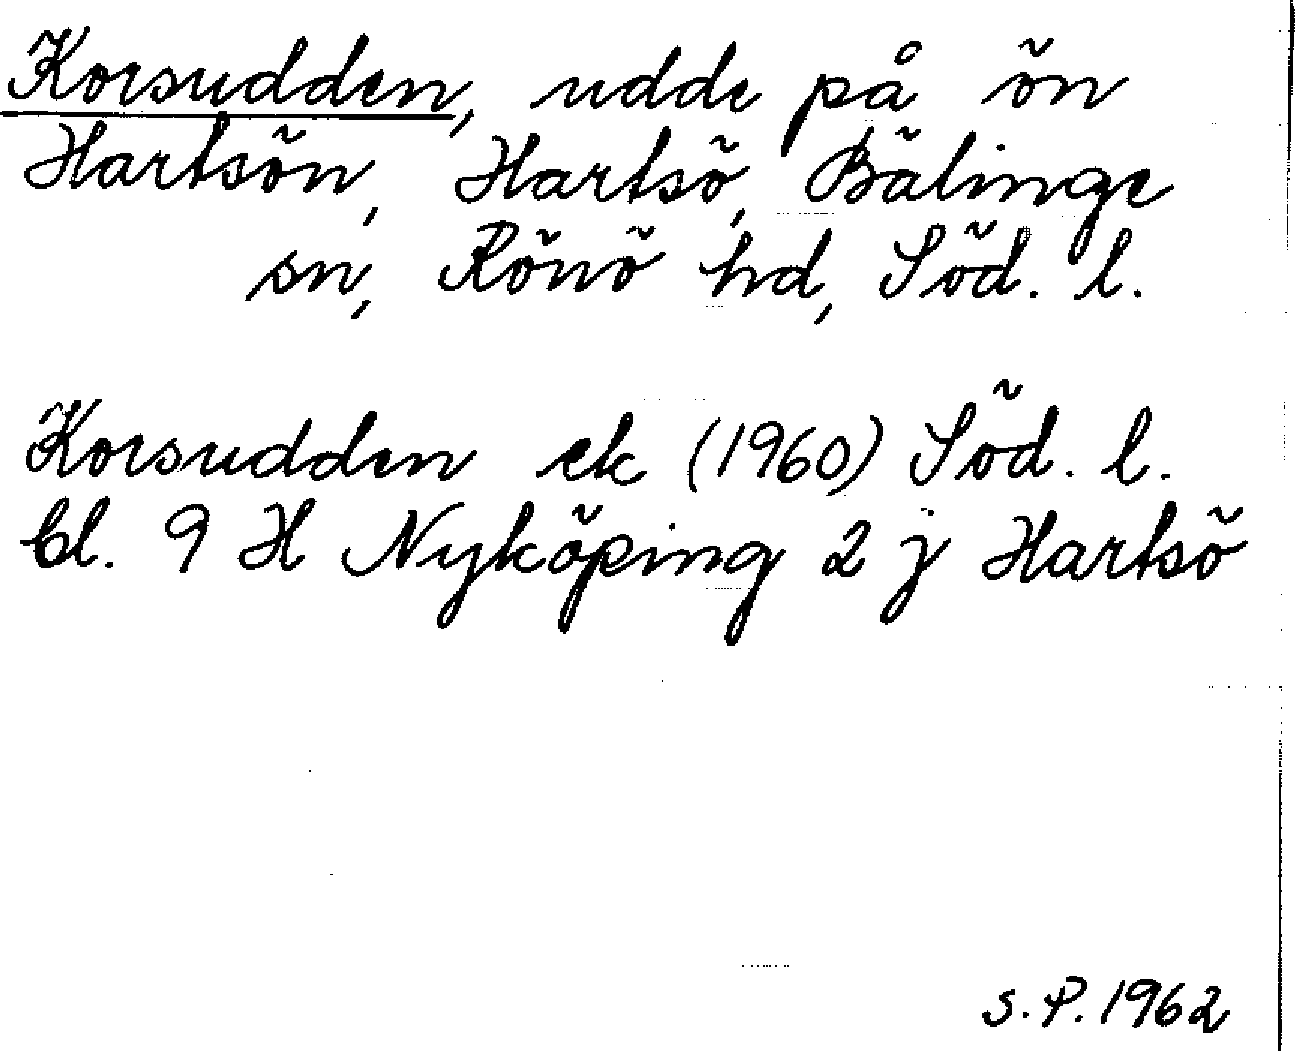 Korsudden, udde på ön
Hartsön, Hartsö, Bälinge
sn, Rönö hd, Söd. l.
Korsudden ek (1960) Söd. l.
bl. 9 H Nyköping 2 j Hartsö
S.P. 1962